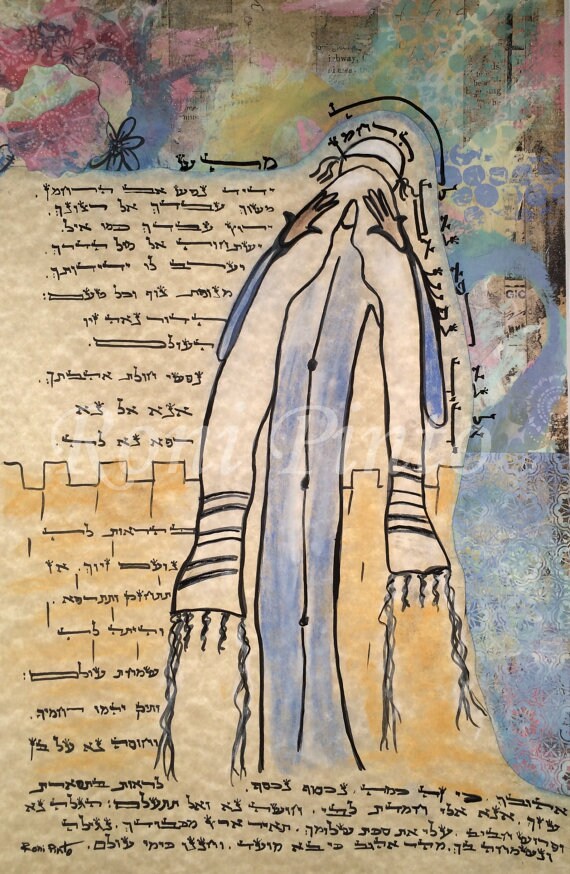 ידיד נפש אב הרחמן.
משוך עבדך אל רצונך.
ירוץ עבדך כמו איל.
ישתחוה אל מול הדרך
יערב לו ידידותך
מנופת צוף וכל טעם:
הדור נאה זיו
העולם
נפשי חולת אהבתך.
אנא אל נא
רפא נא לה
בהראות לה
נועם זיוך. אז
תתחזק ותתרפא.
והיתה לה
שמחת עולם:
ותיק יהמו רחמיך.
וחוסה נא על בן
אהוביך. כי זה כמה. נכסוף נכסף. לראות בתפארת
עוזך. אנא אלי חמדת לבי. וחושה נא ואל תתעלם: הגלה נא
ופרוש חביבי. עלי את סכת שלומך. תאיר ארץ מכבודך. נגילה
ונשמחה בך. מהר אהוב כי בא מועד. וחננו כימי עולם.
Roni Pinto
Roni Pinto